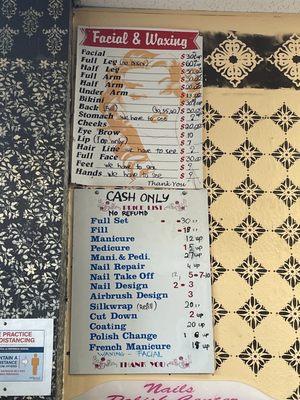 Facial & Waxing
Facial $ 30 up
Full Leg (no Bikini) $ 60 up
Half Leg $ 30 up
Full Arm $
Half Arm $
Under Arm $
Bikini $
Back Full $
Stomach we have to see $
Cheeks $
Eye Brow $ 10
Lip (Top only) $ 7
Hair Line we have to see $ ?
Full Face $ 30 up
Feet we have to see $ ?
Hands we have to see $ ?
Thank You
CASH ONLY
PRICE LIST
NO REFUND
Full Set 30
Fill 18
Manicure 12 up
Pedicure 15 up
Mani. & Pedi. 27 up
Nail Repair 4 up
Nail Take Off 5-7-10
Nail Design 2 - 3
Airbrush Design 3
Silkwrap (Refill) 20
Cut Down 2 up
Coating 20 up
Polish Change 8 up
French Manicure 18 up
WAXING - FACIAL
THANK YOU
Nails
PRACTICE
DISTANCING
6 FT